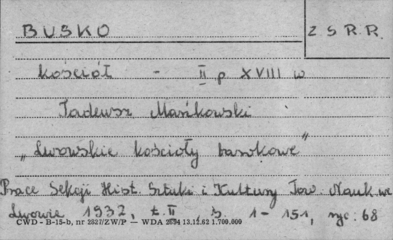 BUSKO
Z S R.R.
kościół - II p XVIII w
Tadeusz Mańkowski
„Lwowskie kościoły barokowe”
Prace Sekcji Hist. Sztuki i Kultury Tow. Nauk. we
Lwowie 1932, t. II s. 1-151, ryc. 68
CWD - B-15-b, nr 2837/ZW/P — WDA 13.12.62 1.700.000